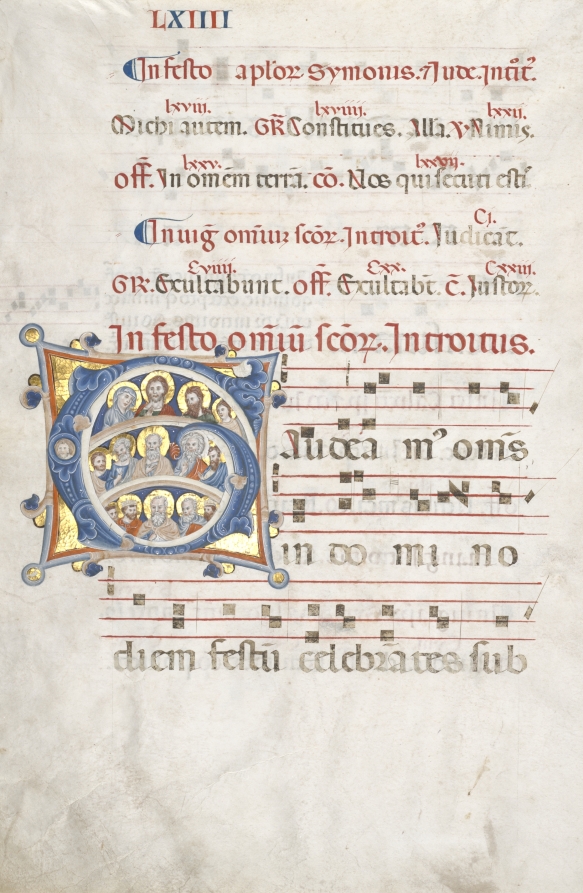 LXIIII
In festo aplor Symonis. ⁊ Jude. Introit̃.
lxviii. lxviiii. lxxii.
Michi autem. GR̃ Constitues. Alla. V̾ Nimis.
lxxv. lxxvii.
off̃. In omem terrã. cõ. Nos qui secuti esti
Cj.
In uig̃ omniuꝫ scõꝝ. Introit᷒. Iudicãt.
Cviiii. Cxx. Cxxiii.
GR. Exultabunt. off̃. Exultabt̃. c̃. Iustoꝝ.
In festo omiũ scõꝝ. Introitus.
Gaudeã m᷒ oms
in do mi no
diem festũ celebrãtes sub